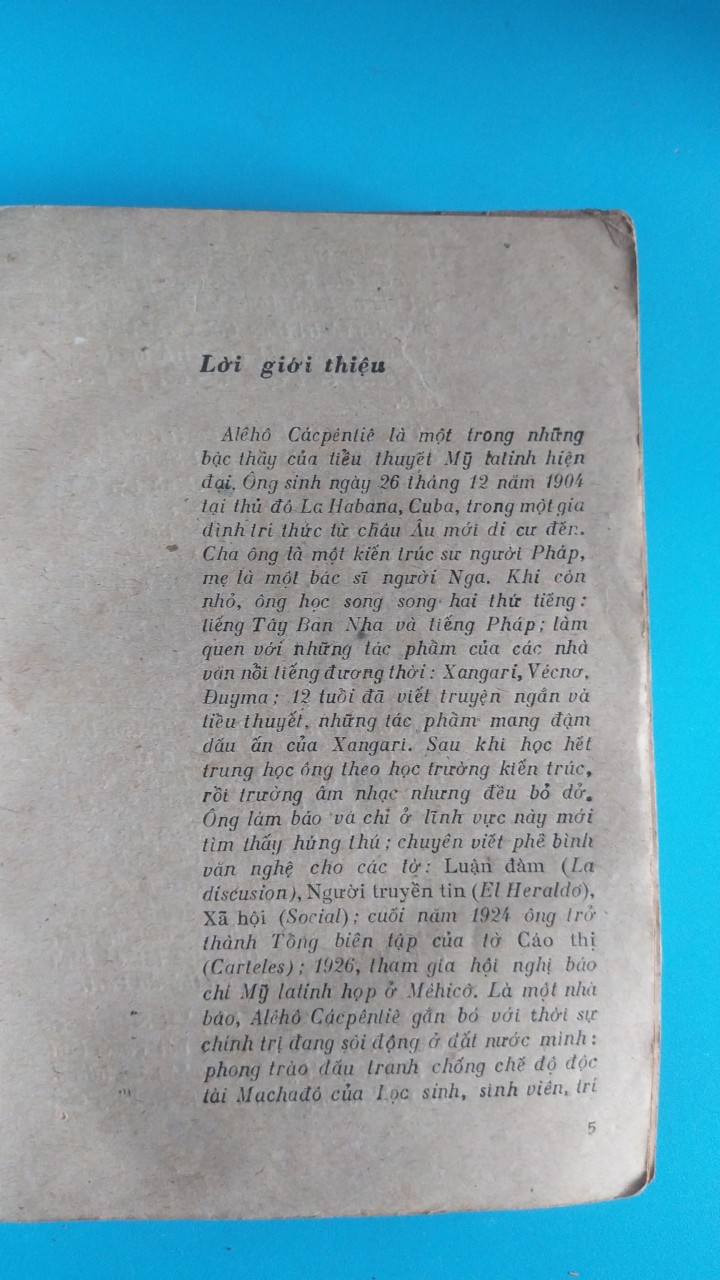 Lời giới thiệu
Alêhô Cácpêntiê là một trong những
bậc thầy của tiểu thuyết Mỹ latinh hiện
đại. Ông sinh ngày 26 tháng 12 năm 1904
tại thủ đô La Habana, Cuba, trong một gia
đình trí thức từ châu Âu mới di cư đến.
Cha ông là một kiến trúc sư người Pháp,
mẹ là một bác sĩ người Nga. Khi còn
nhỏ, ông học song song hai thứ tiếng :
tiếng Tây Ban Nha và tiếng Pháp ; làm
quen với những tác phẩm của các nhà
văn nổi tiếng đương thời : Xangari, Vécnơ,
Đuyma ; 12 tuổi đã viết truyện ngắn và
tiểu thuyết, những tác phẩm mang đậm
dấu ấn của Xangari. Sau khi học hết
trung học ông theo học trường kiến trúc,
rồi trường âm nhạc nhưng đều bỏ dở.
Ông làm báo và chỉ ở lĩnh vực này mới
tìm thấy hứng thú ; chuyên viết phê bình
văn nghệ cho các tờ : Luận đàm (La
discusion), Người truyền tin (El Heraldo),
Xã hội (Social) ; cuối năm 1924 ông trở
thành Tổng biên tập của tờ Cáo thị
(Carteles) ; 1926, tham gia hội nghị báo
chí Mỹ latinh họp ở Mêhicô. Là một nhà
báo, Alêhô Cácpêntiê gắn bó với thời sự
chính trị đang sôi động ở đất nước mình :
phong trào đấu tranh chống chế độ độc
tài Machađô của học sinh, sinh viên, trí
5